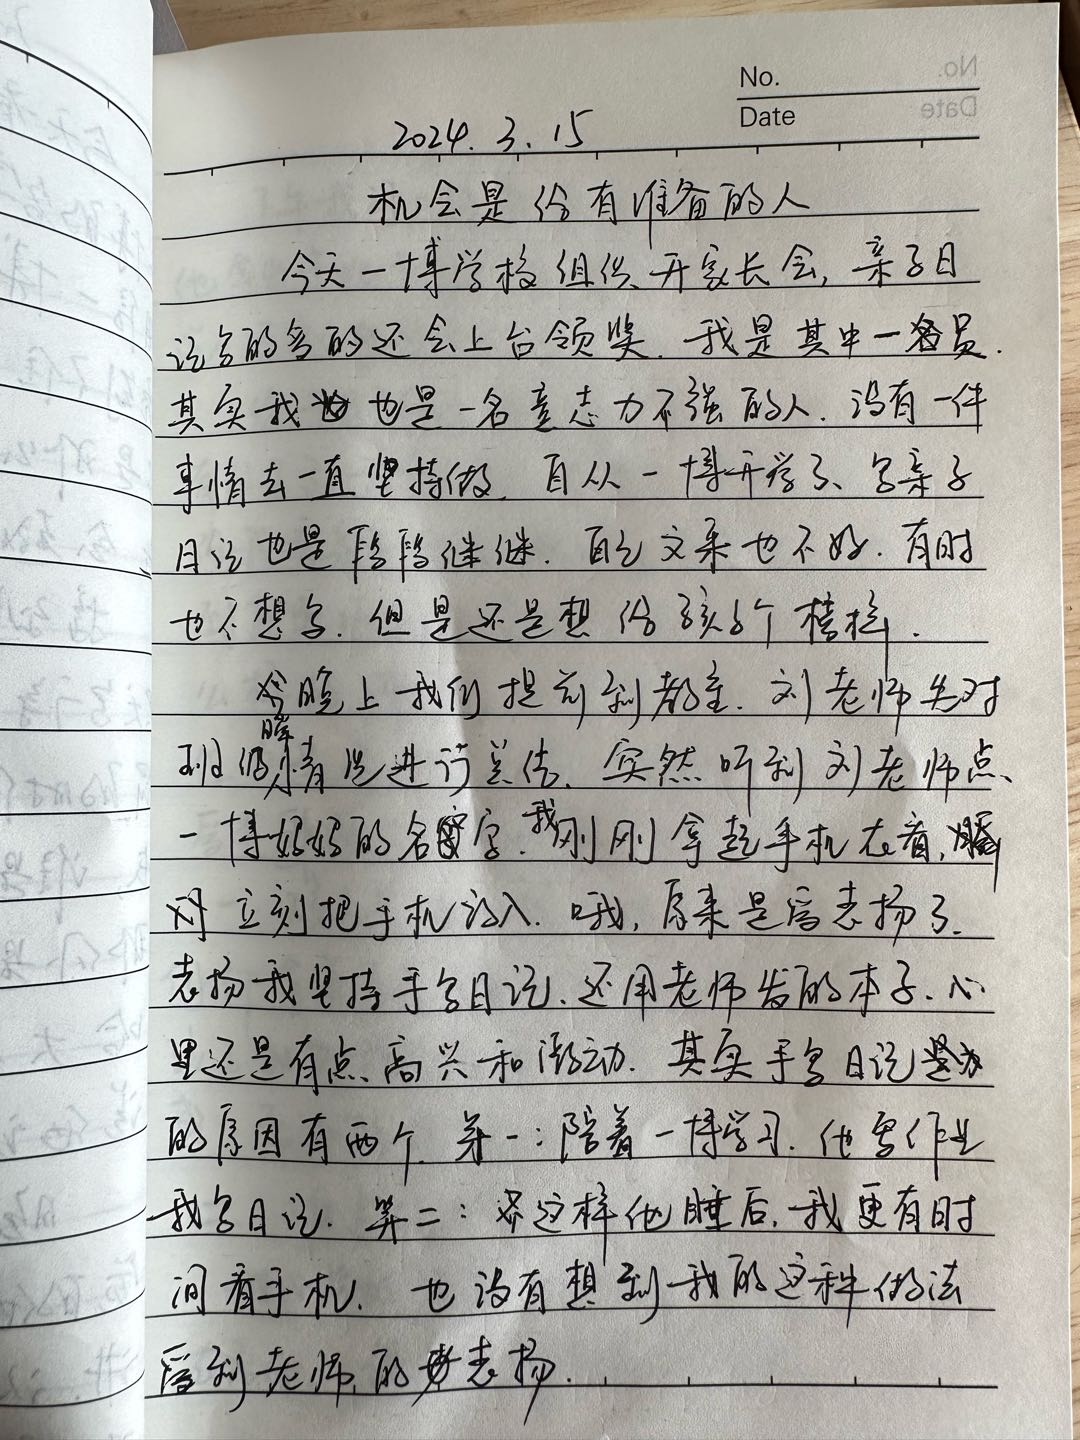 No.
Date
2024.3.15
机会是给有准备的人
今天一博学校组织开家长会,亲子日
记写的多的还会上台领奖.我是其中一名员.
其实我也是一名意志力不强的人.没有一件
事情去一直坚持做.自从一博开学了、写亲子
日记也是断断继继.自己文采也不好.有时
也不想写.但是还是想给孩子个榜样.
今晚上我们提前到教室.刘老师先对
班级情况进行总结.突然听到刘老师点
一博妈妈的名字.我刚刚拿起手机在看,
立刻把手机放入.哦,原来是受表扬了.
表扬我坚持手写日记.还用老师发的本子.心
里还是有点高兴和激动.其实手写日记
的原因有两个.第一:陪着一博学习.他写作业
我写日记.第二:这样他睡后,我更有时
间看手机.也没有想到我的这种做法
受到老师的表扬.